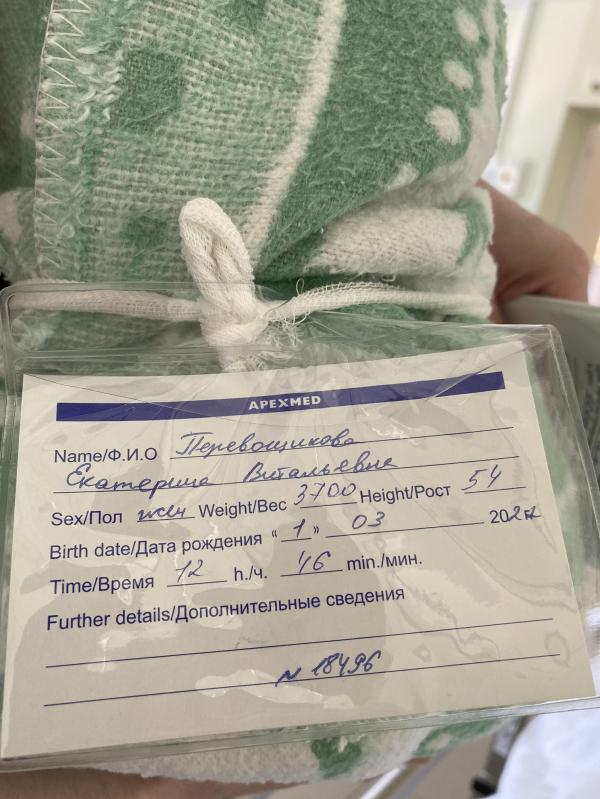 APEXMED
Name/Ф.И.О Перевощикова
Екатерина Витальевна
Sex/Пол жен Weight/Вес 3700 Height/Рост 54
Birth date/Дата рождения « 1 » 03
Time/Время 12 h./ч. 46 min./мин.
Further details/Дополнительные сведения
N 18496